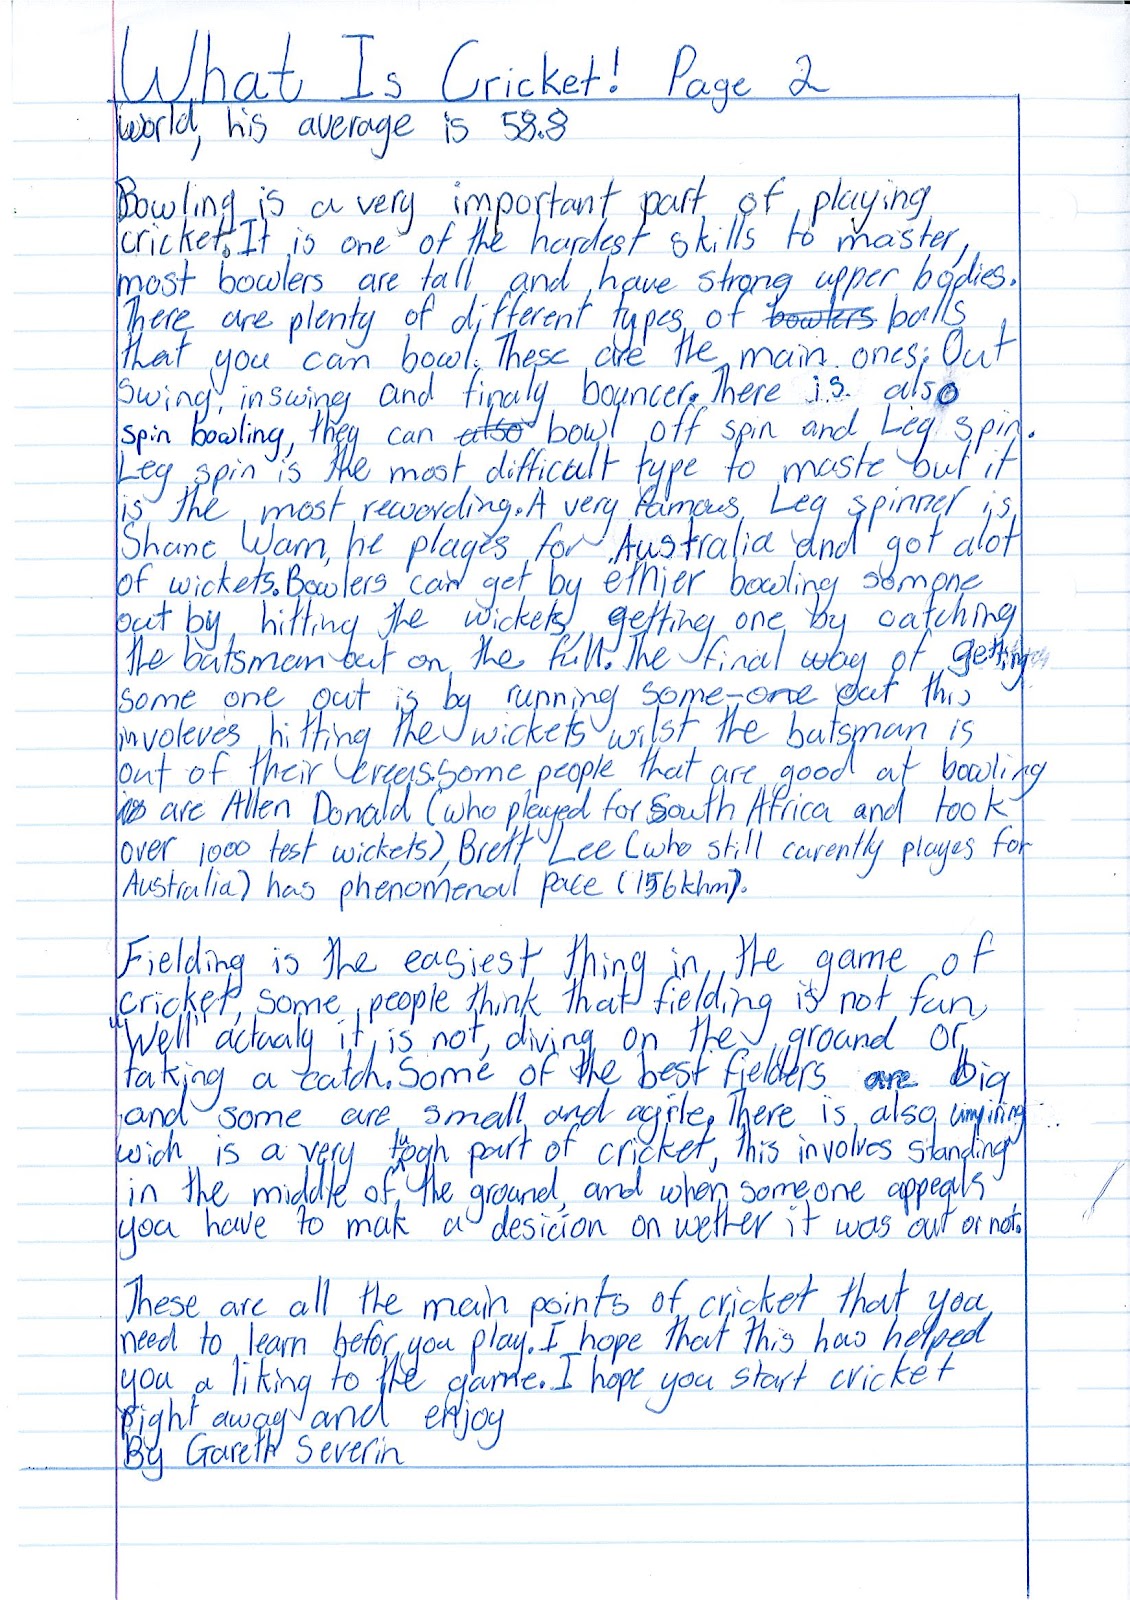 What Is Cricket! Page 2
world, his average is 58.8
Bowling is a very important part of playing
cricket. It is one of the hardest skills to master,
most bowlers are tall and have strong upper bodies.
There are plenty of different types of bowlers balls
that you can bowl. These are the main ones; Out
swing, inswing and finaly bouncer. There is also
spin bowling, they can also bowl off spin and Leg spin.
Leg spin is the most difficult type to maste but it
is the most rewording. A very famous Leg spinner is
Shane Warn, he playes for Australia and got alot
of wickets. Bowlers can get by ethier bowling somone
out by hitting the wickets, getting one by catching
the batsman out on the full. The final way of getting
some one out is by running some-one out this
involeves hitting the wickets wilst the batsman is
out of their creas. some people that are good at bowling
are Allen Donald (who played for South Africa and took
over 1000 test wickets), Brett Lee (who still carently playes for
Australia) has phenomenal pace (156khm).
Fielding is the easiest thing in the game of
cricket, some people think that fielding is not fun,
"Well" actualy it is not, diving on the ground or
taking a catch. Some of the best fielders are big
and some are small and agile. There is also umpiring
wich is a very tough part of cricket, this involves standing
in the middle of the ground and when someone appeals
you have to mak a desicion on wether it was out or not.
These are all the main points of cricket that you
need to learn befor you play. I hope that this has helped
you a liking to the game. I hope you start cricket
right away and enjoy
By Gareth Severin